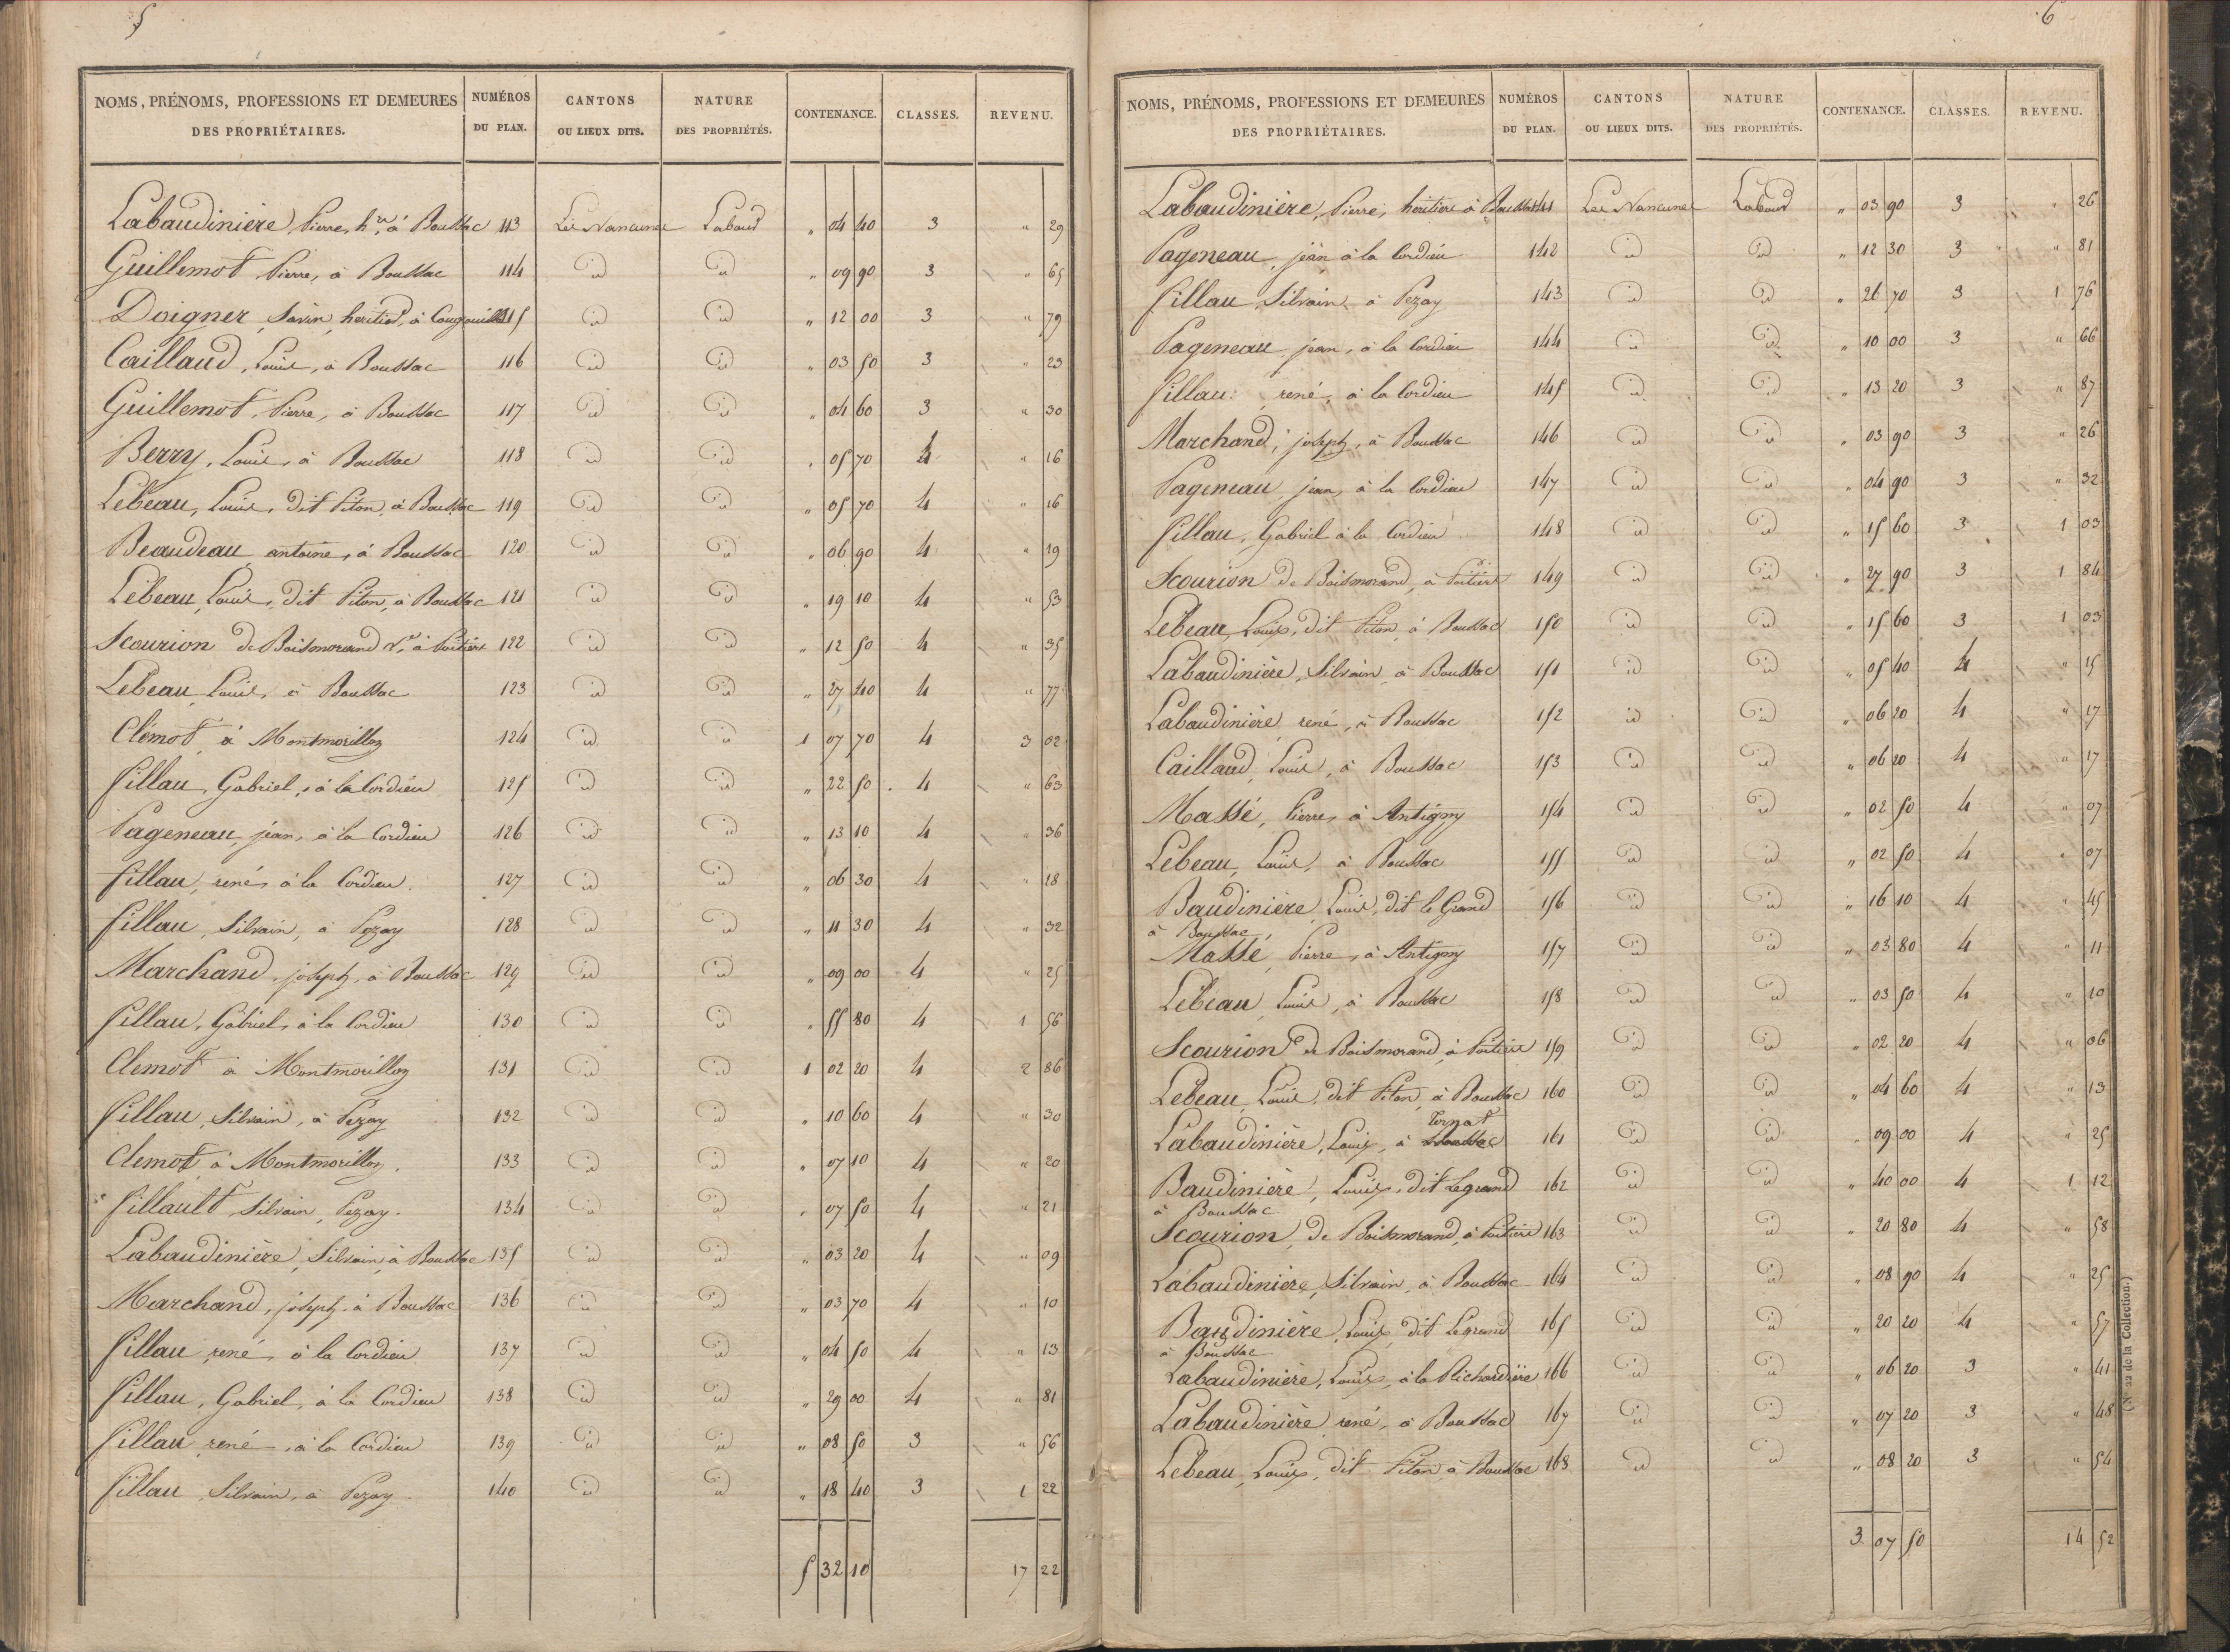 5
NOMS, PRÉNOMS, PROFESSIONS ET DEMEURES DES PROPRIÉTAIRES. NUMÉROS DU PLAN. CANTONS OU LIEUX DITS. NATURE DES PROPRIÉTÉS. CONTENANCE. CLASSES. REVENU.
Labaudinière, Pierre, hers à Boussac 113 Les Nancunes Labour " 04 40 3 " 29
Guillemot Pierre, à Boussac 114 id id " 09 90 3 " 65
Doigner, Savin, heritier, à 115 id id " 12 00 3 " 79
Caillaud, Louis, à Boussac 116 id id " 03 50 3 " 23
Guillemot, Pierre, à Boussac 117 id id " 04 60 3 " 30
Berry, Louis, à Boussac 118 id id " 05 70 4 " 16
Lebeau, Louis, dit Piton, à Boussac 119 id id " 05 70 4 " 16
Beaudeau antoine, à Boussac 120 id id " 06 90 4 " 19
Lebeau, Louis, dit Piton, à Boussac 121 id id " 19 10 4 " 53
Scourion de Boismorand Ve à Poitiers 122 id id " 12 50 4 " 35
Lebeau, Louis, à Boussac 123 id id " 27 40 4 " 77
Clémot, à Montmorillon 124 id id 1 07 70 4 3 02
fillau, Gabriel, à la Cordieu 125 id id " 22 50 4 " 63
Pageneau, jean, à la Cordieu 126 id id " 13 10 4 " 36
fillau, rené, à la Cordieu 127 id id " 06 30 4 " 18
fillau, Silvain, à Pezay 128 id id " 11 30 4 " 32
Marchand, joseph, à Boussac 129 id id " 09 00 4 " 25
fillau, Gabriel, à la Cordieu 130 id id " 55 80 4 1 56
Clemot à Montmorillon 131 id id 1 02 20 4 2 86
fillau, Silvain, à Pezay 132 id id " 10 60 4 " 30
Clemot à Montmorillon 133 id id " 07 10 4 " 20
fillault Silvain, Pezay 134 id id " 07 50 4 " 21
Labaudinière, Silvain, à Boussac 135 id id " 03 20 4 " 09
Marchand, joseph, à Boussac 136 id id " 03 70 4 " 10
fillau rené, à la Cordieu 137 id id " 04 50 4 " 13
fillau, Gabriel, à la Cordieu 138 id id " 29 00 4 " 81
fillau rené, à la Cordieu 139 id id " 08 50 3 " 56
fillau, Silvain, à Pezay 140 id id " 18 40 3 1 22
5 32 10 17 22
6
NOMS, PRÉNOMS, PROFESSIONS ET DEMEURES DES PROPRIÉTAIRES. NUMÉROS DU PLAN. CANTONS OU LIEUX DITS. NATURE DES PROPRIÉTÉS. CONTENANCE. CLASSES. REVENU.
Labaudinière, Pierre, heritiers à Boussac 141 Les Nancunes Labour " 03 90 3 " 26
Pageneau, jean à la Cordieu 142 id id " 12 30 3 " 81
fillau Silvain, à Pezay 143 id id " 26 70 3 1 76
Pageneau jean, à la Cordieu 144 id id " 10 00 3 " 66
fillau, rené, à la Cordieu 145 id id " 13 20 3 " 87
Marchand, joseph, à Boussac 146 id id " 03 90 3 " 26
Pageneau jean, à la Cordieu 147 id id " 04 90 3 " 32
fillau, Gabriel à la Cordieu 148 id id " 15 60 3 1 03
Scourion de Boismorand, à Poitiers 149 id id " 27 90 3 1 84
Lebeau, Louis, dit Piton à Boussac 150 id id " 15 60 3 1 03
Labaudinière, Silvain à Boussac 151 id id " 05 40 4 " 15
Labaudinière, rené, à Boussac 152 id id " 06 20 4 " 17
Caillaud, Louis, à Boussac 153 id id " 06 20 4 " 17
Massé, Pierre, à Antigny 154 id id " 02 50 4 " 07
Lebeau, Louis, à Boussac 155 id id " 02 50 4 " 07
Baudinière, Louis, dit le Grand 156 id id " 16 10 4 " 45
à Boussac,
Massé, Pierre, à Antigny 157 id id " 03 80 4 " 11
Lebeau, Louis, à Boussac 158 id id " 03 50 4 " 10
Scourion de Boismorand, à Poitiers 159 id id " 02 20 4 " 06
Lebeau, Louis, dit Piton, à Boussac 160 id id " 04 60 4 " 13
Tornat
Labaudinière, Louis, à Boussac 161 id id " 09 00 4 " 25
Baudinière, Louis, dit Legrand 162 id id " 40 00 4 1 12
à Boussac
Scourion, de Boismorand, à Poitiers 163 id id " 20 80 4 " 58
Labaudinière, Silvain, à Boussac 164 id id " 08 90 4 " 25
Baudinière, Louis, dit Legrand 165 id id " 20 20 4 " 57
à Boussac
Labaudinière, Louis, à la Richardière 166 id id " 06 20 3 " 41
Labaudinière rené, à Boussac 167 id id " 07 20 3 " 48
Lebeau, Louis, dit Piton, à Boussac 168 id id " 08 20 3 " 54
3 07 50 14 52
(N° 22 de la Collection.)